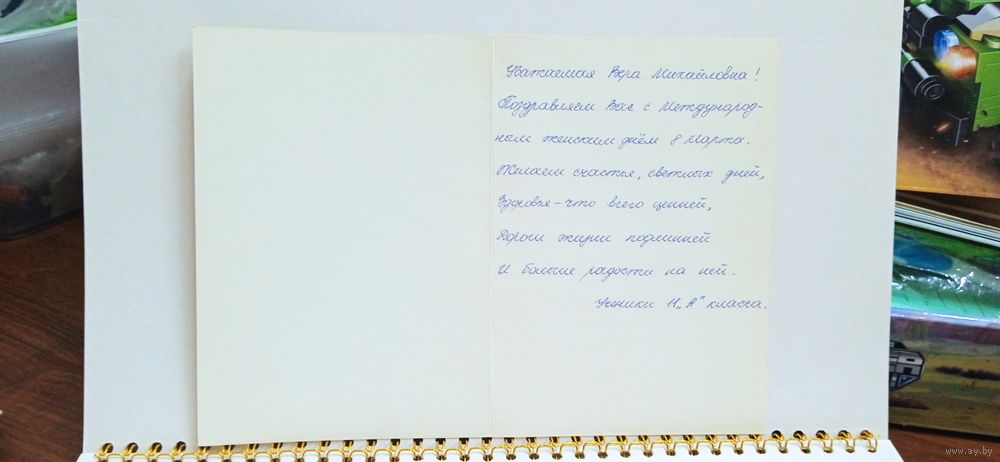 Уважаемая Вера Михайловна!
Поздравляем Вас с Международ-
ным женским днём 8 Марта.
Желаем счастья, светлых дней,
Здоровья - что всего ценней,
Дороги жизни подлинней
И больше радости на ней.
Ученики 11 „А" класса.
www.ay.by